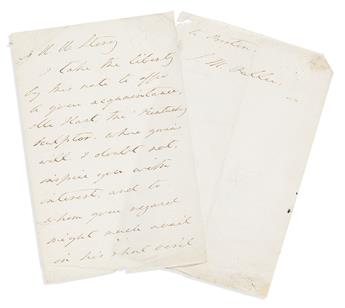 I take the liberty
by this note to offer
to your acquaintance,
Mr Hart the Kentucky
Sculptor. whose genius
will, I doubt not,
inspire you with
interest, and to
whom your regard
might much avail
in his short visit
to Boston.